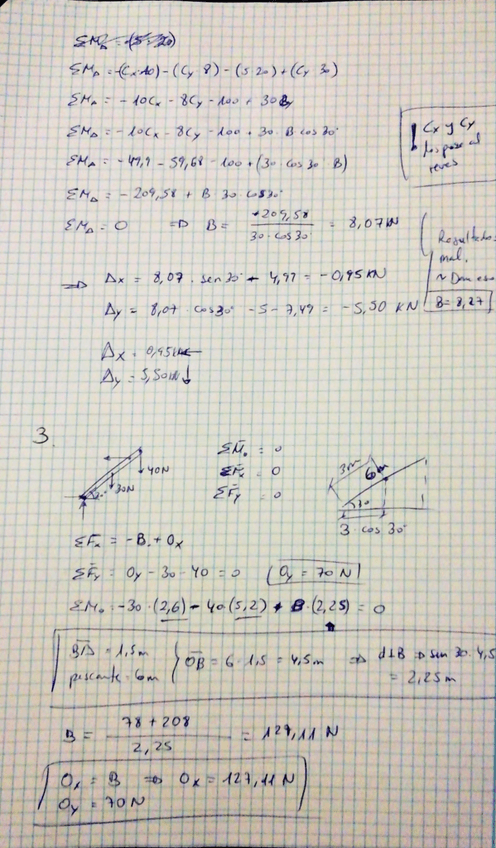 ΣM_A = -(Cx·10) - (Cy·8) - (5·20) + (Cy·30)
ΣM_A = -10Cx - 8Cy - 100 + 30By
ΣM_A = -10Cx - 8Cy - 100 + 30·B cos30°
ΣM_A = -49,9 - 59,68 - 100 + (30·cos30·B)
ΣM_A = -209,58 + B·30·cos30°
ΣM_A = 0 ⇒ B = 209,58 / 30·cos30° = 8,07KN
! Cx y Cy
los pase al
reves
Resultados
mal.
B = 8,27
⇒ Ax = 8,07·sen30° - 4,97 = -0,95KN
Ay = 8,07·cos30° - 5 - 7,49 = -5,50 KN
Ax = 0,95KN ←
Ay = 5,50KN ↓
3.
40N
30N
ΣM̄o = 0
ΣF̄x = 0
ΣF̄y = 0
3m
6m
30
3·cos30°
ΣF̄x = -B + Ox
ΣF̄y = Oy - 30 - 40 = 0 Oy = 70 N
ΣMo = -30·(2,6) - 40(5,2) + B·(2,25) = 0
BA = 1,5m
pescante = 6m
OB = 6 - 1,5 = 4,5m ⇒ d⊥B ⇒ sen 30·4,5
= 2,25m
B = 78 + 208 / 2,25 = 127,11 N
Ox = B ⇒ Ox = 127,11N
Oy = 70N